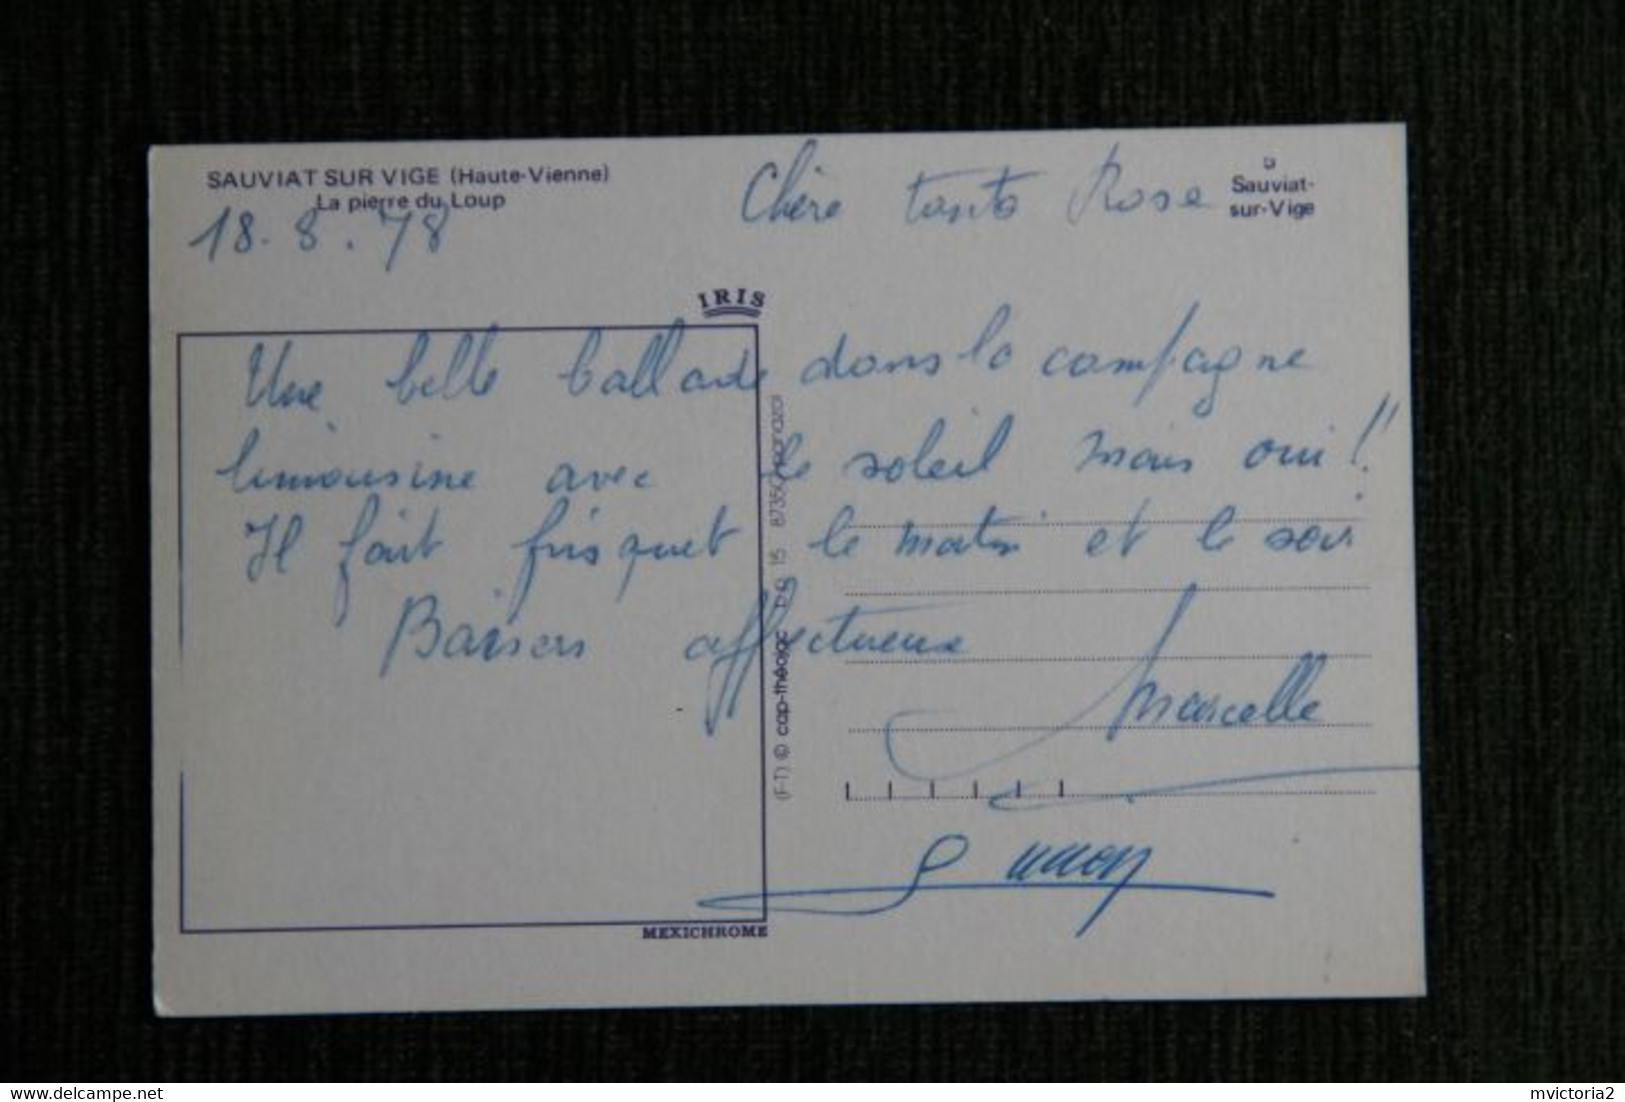 SAUVIAT SUR VIGE (Haute-Vienne)
La pierre du Loup
18.8.78
Chère tante Rose
Sauviat-
sur-Vige
IRIS
Une belle ballade dans la campagne
limousine avec le soleil mais oui !!
Il fait frisquet le matin et le soir
Baisers affectueux
Marcelle
MEXICHROME
(F-T) © cap-théojac
mvictoria2